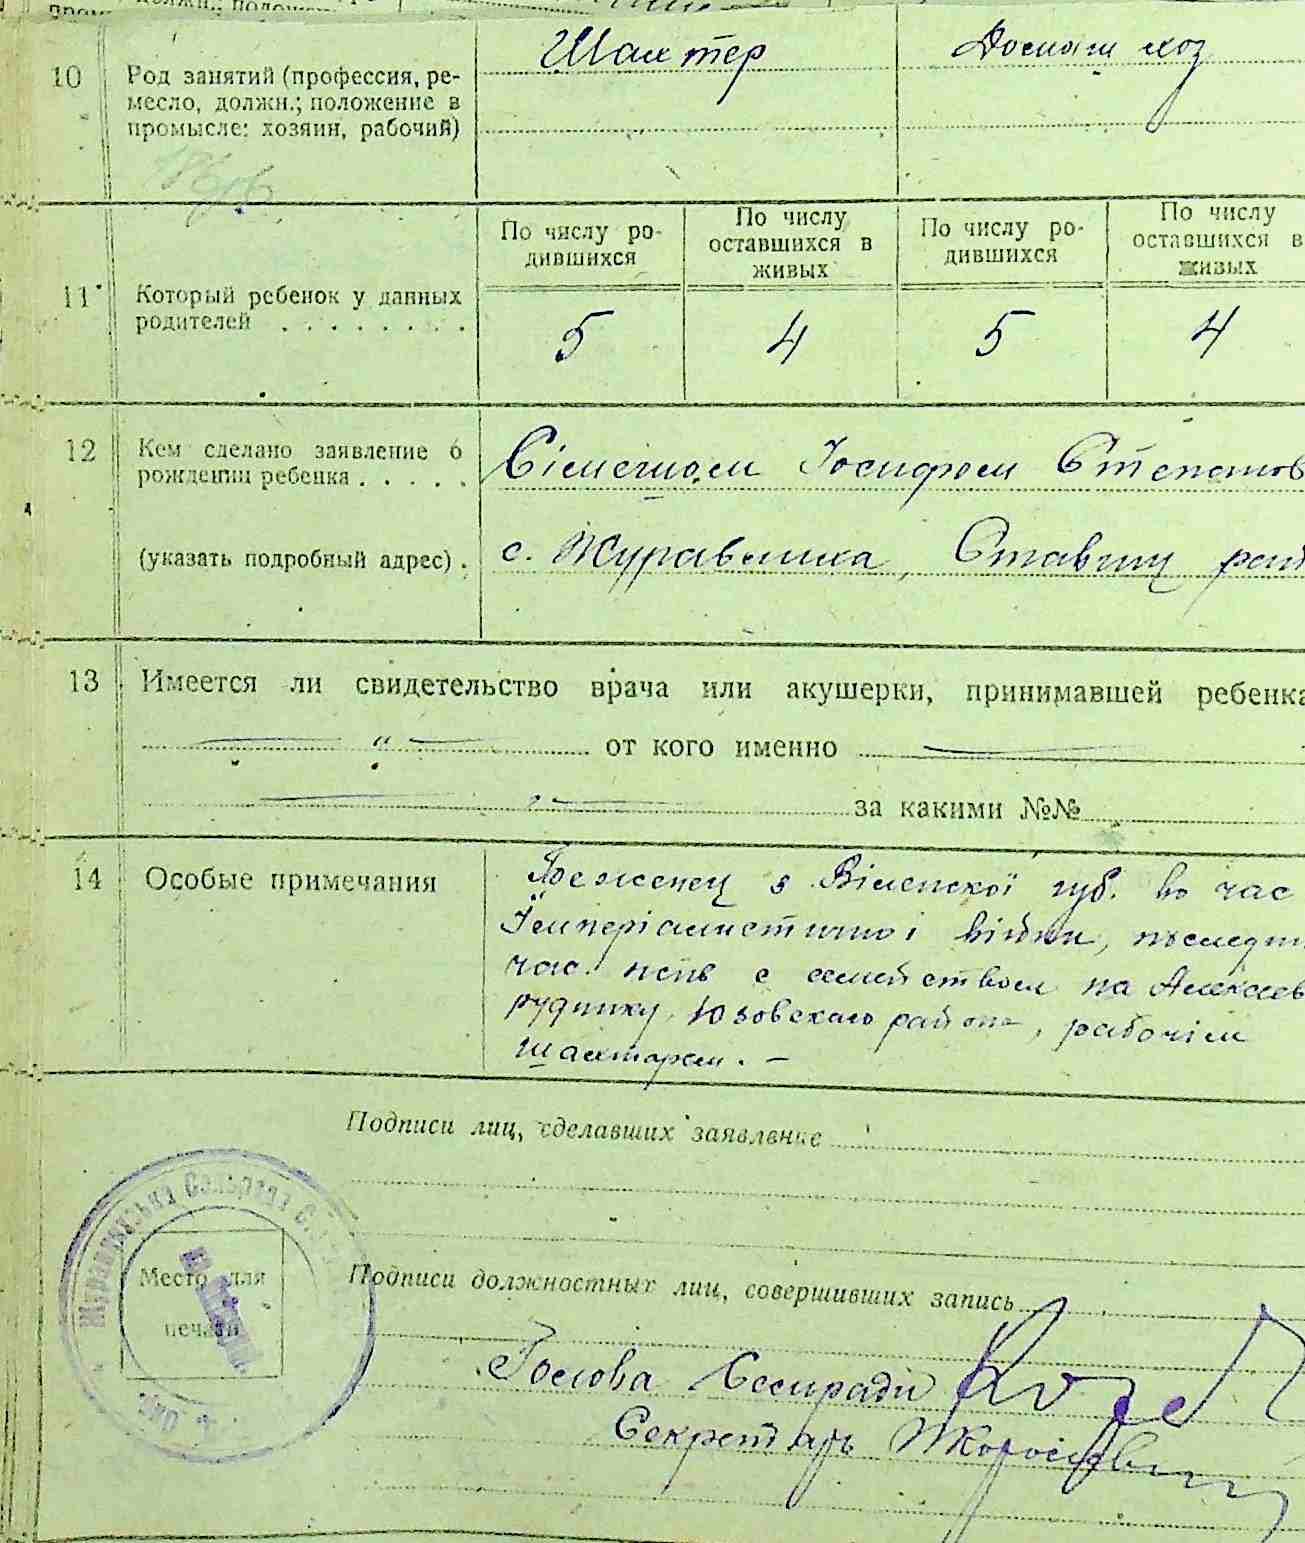 10
Род занятий (профессия, ре-
месло, должн.; положение в
промысле: хозяин, рабочий)
Шахтер
Домаш хоз
11
Который ребенок у данных
родителей . . . . . . . .
По числу ро-
дившихся
По числу
оставшихся в
живых
По числу ро-
дившихся
По числу
оставшихся в
живых
5
4
5
4
12
Кем сделано заявление о
рождении ребенка . . . . .
Іосифом Степанов
(указать подробный адрес) .
с. Журавлиха, Ставищ рай
13
Имеется ли свидетельство врача или акушерки, принимавшей ребенка
— " — от кого именно —
за какими №№
14
Особые примечания
Беженец з Віленскої губ. во час
Імперіалистичної війни, последни
час с семейством на Алексеев
руднику Юзовскаго района, рабочім
шахтарем. –
Подписи лиц, сделавших заявление
Журавлихська Сельрада
Место для
печати
Подписи должностных лиц, совершивших запись
Голова Сельради
Секретарь